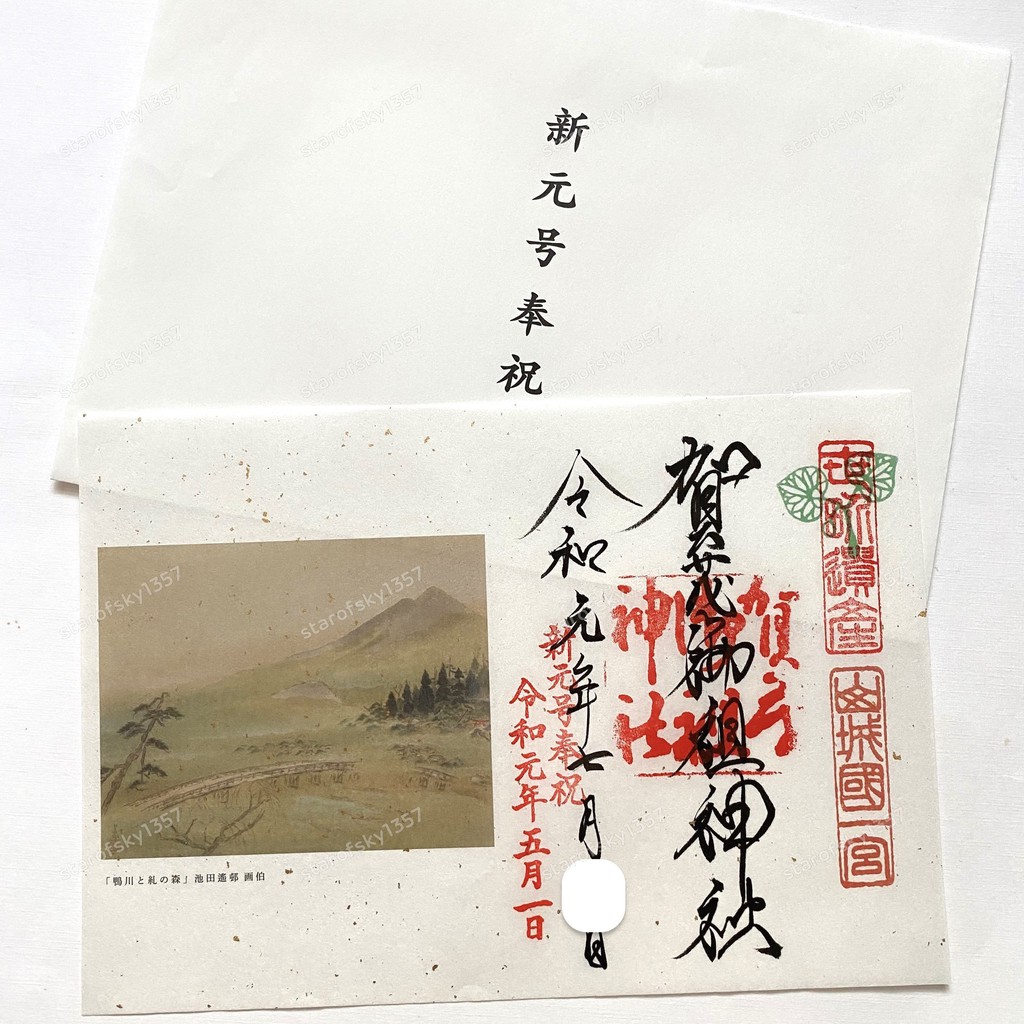 新元号奉祝
世界遺産
山城國一宮
賀茂御祖神社
賀茂御祖神社
令和元年七月 日
新元号奉祝
令和元年五月一日
「鴨川と糺の森」池田遙邨 画伯
starofsky1357